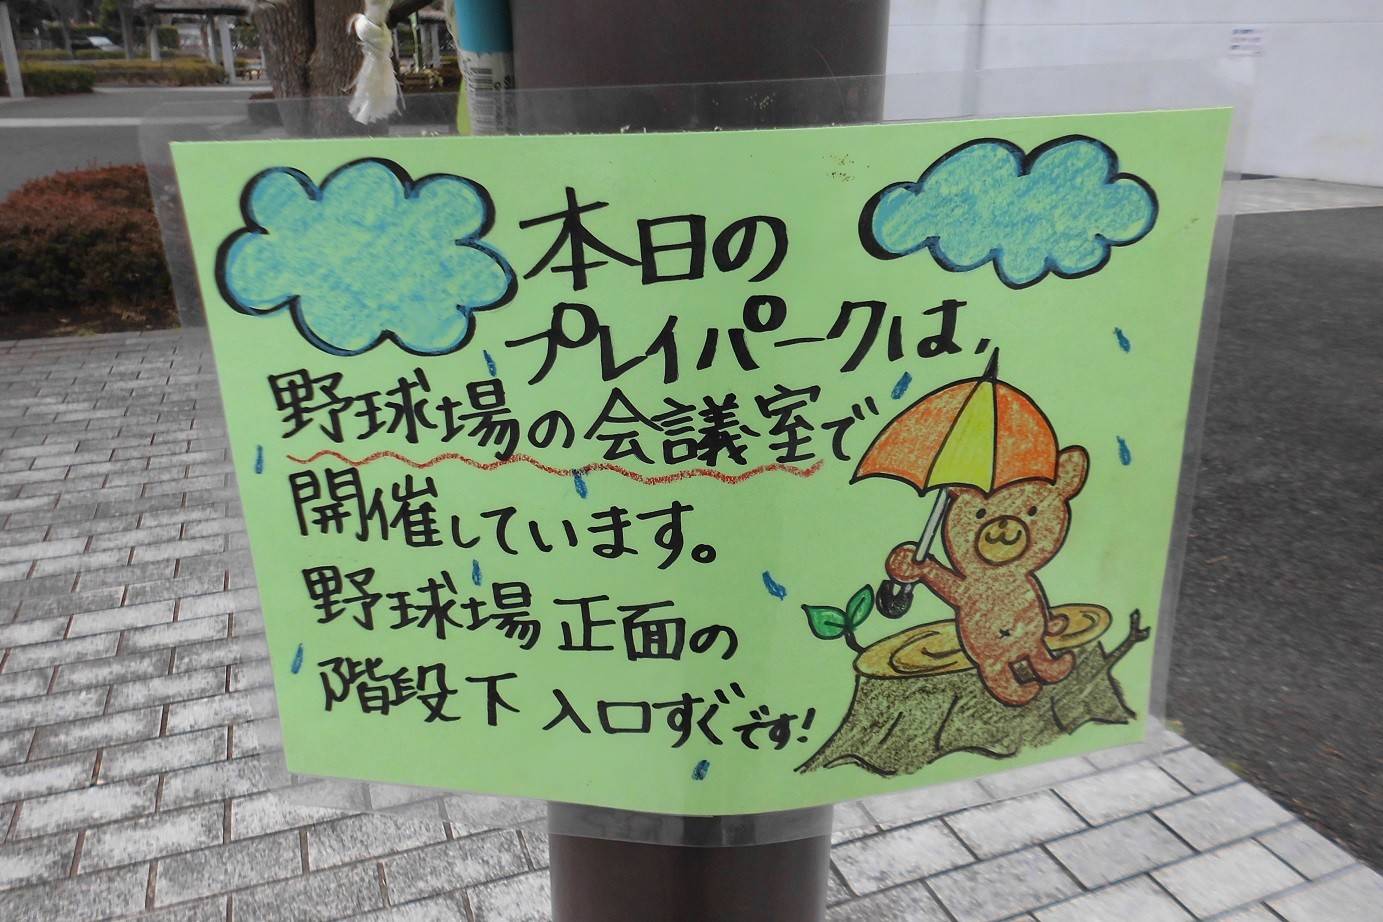 本日の
プレイパークは、
野球場の会議室で
開催しています。
野球場 正面の
階段下 入口すぐです!